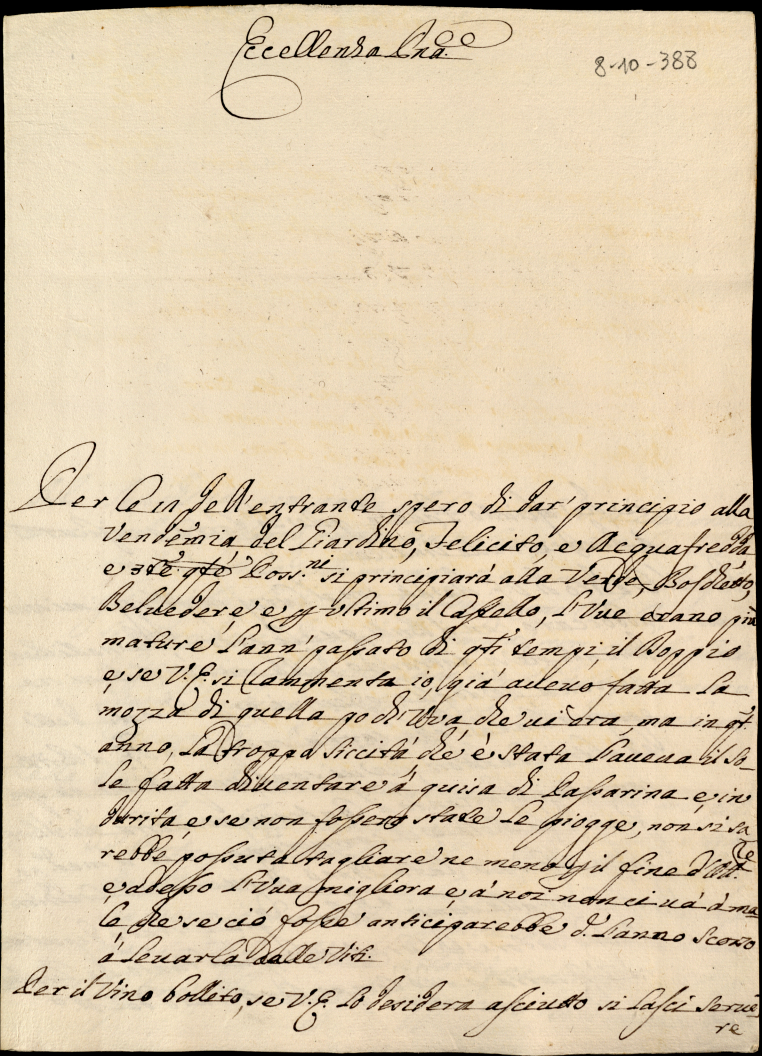 Eccellenza Pna.
8-10-388
Per dell'entrante spero di dar' principio alla
Vendemia del Giardino, Felicito, e Acquafredda
e Poss.ni si principiará alla Verde, Boschetto,
Belvedere, e p ultimo il Castello, L'Vue erano piu
mature L'ann' passato di qsti tempi, il Doppio
e se V.E. si Rammenta io, giá avevo fatta La
mozza di quella po di Uva che vi era, ma in qst
anno, La troppa siccitá che è stata L'aveva il so-
le fatta diventare á guisa di Passarina e, in
durita, e se non fossero state Le piogge, non si sa
rebbe possuta tagliare ne meno p il fine d'Ott.re
e adesso L'Vua migliora e á noi non ci vá á ma
le che se ció fosse anticiparebbe d. L'anno scorso
á Levarla dalle Viti.
Per il Vino bollito, se V.E. Lo desidera asciutto si Lasci serui
re